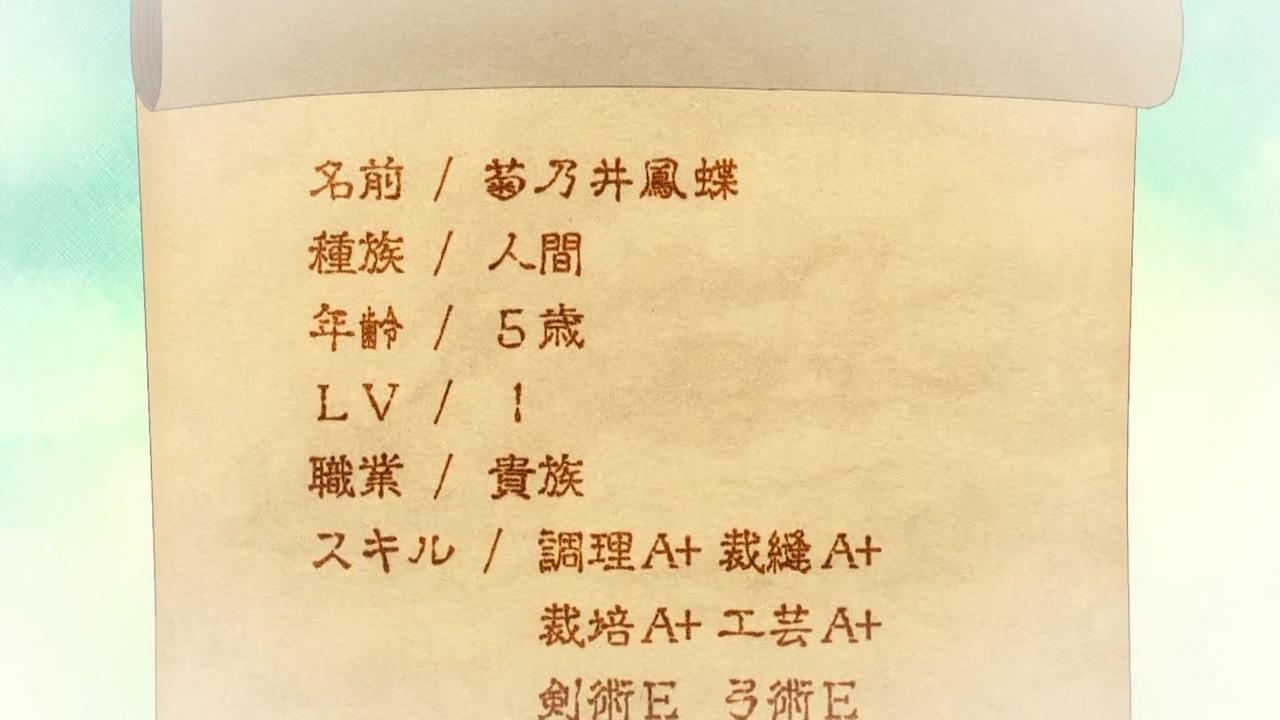 名前 / 菊乃井鳳蝶
種族 / 人間
年齢 / 5歳
LV / 1
職業 / 貴族
スキル / 調理A+ 裁縫A+
栽培A+ 工芸A+
剣術E 弓術E